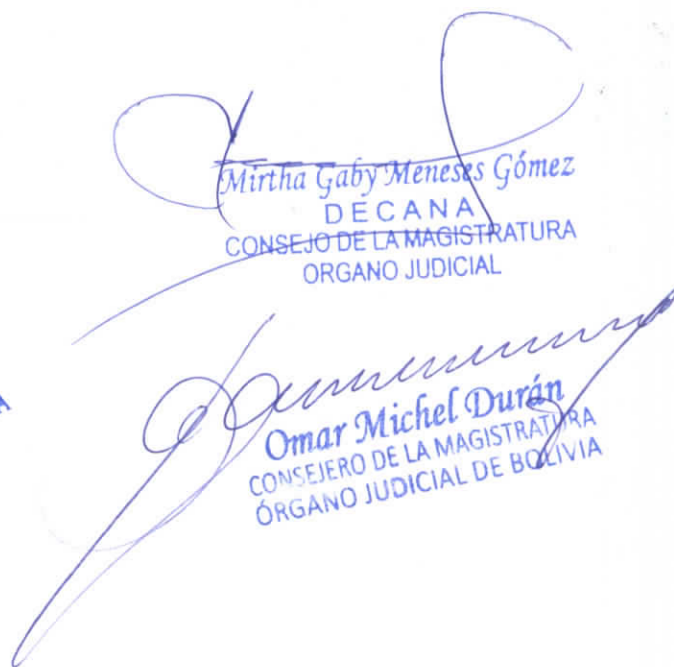 Mirtha Gaby Meneses Gómez
DECANA
CONSEJO DE LA MAGISTRATURA
ORGANO JUDICIAL
Omar Michel Durán
CONSEJERO DE LA MAGISTRATURA
ÓRGANO JUDICIAL DE BOLIVIA